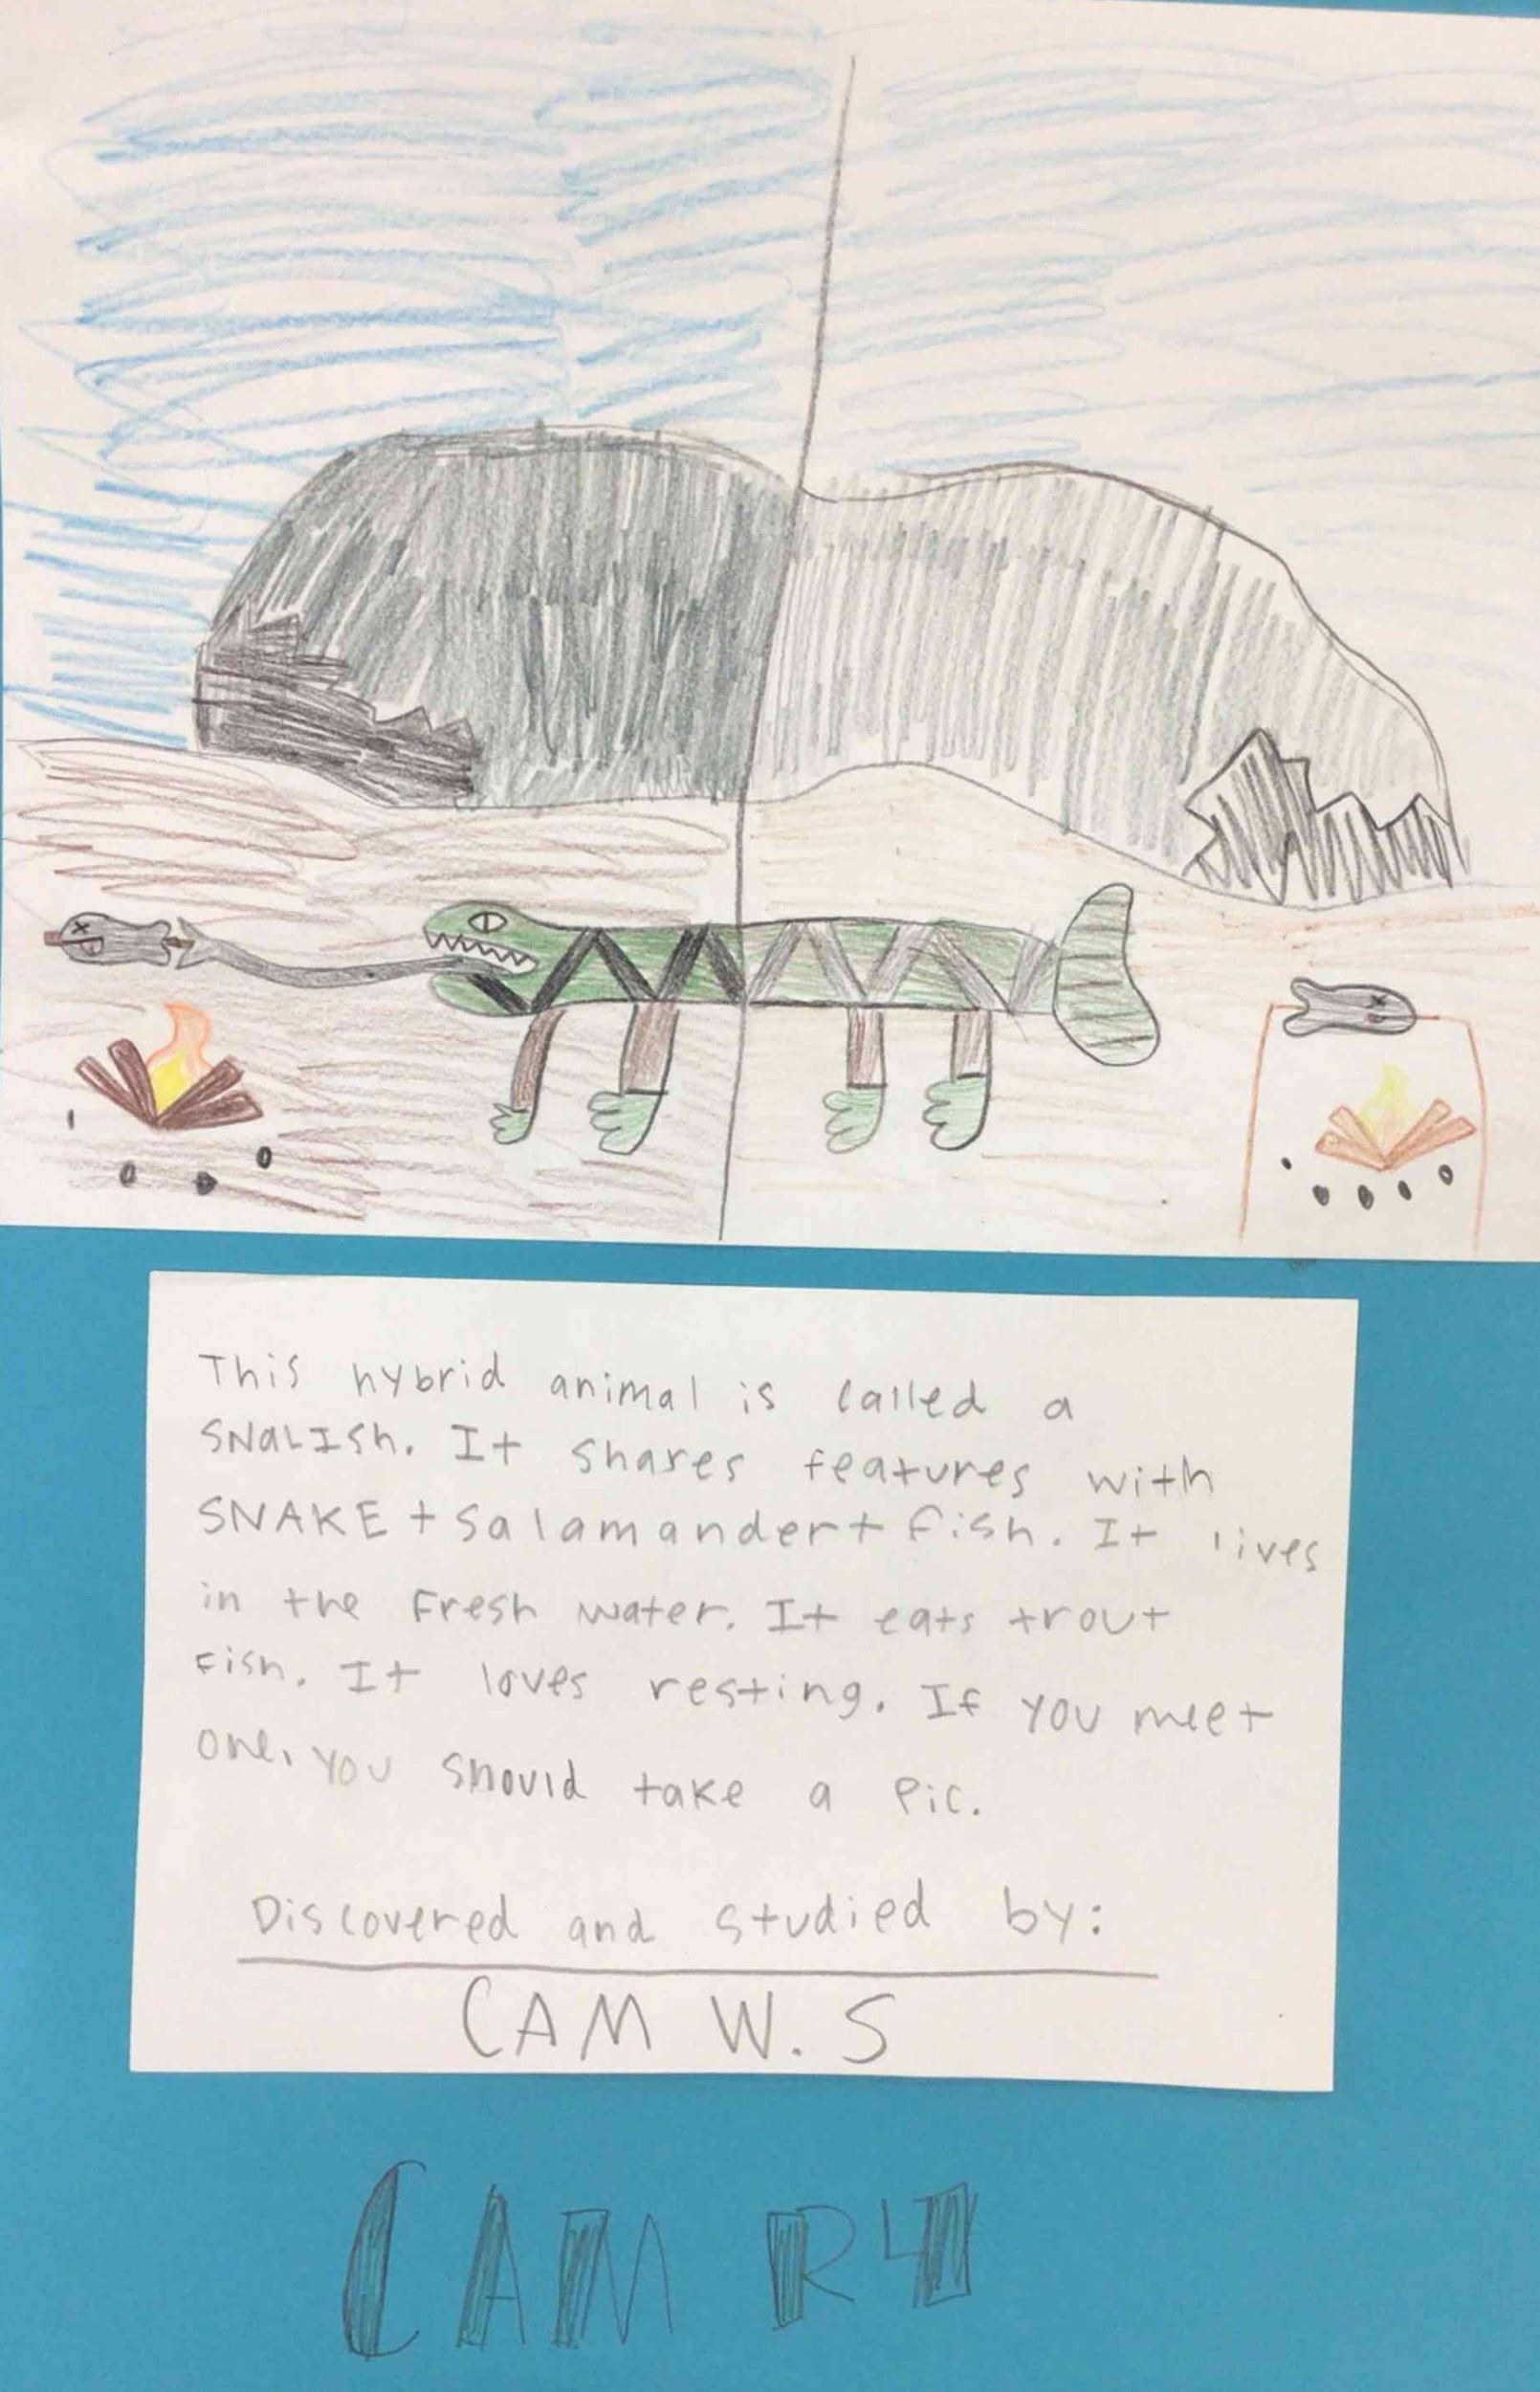 This hybrid animal is called a
SNaLIsh. It shares features with
SNAKE + salamander + fish. It lives
in the Fresh water. It eats trout
Fish. It loves resting. If you meet
one, you should take a Pic.
Discovered and studied by:
CAM W. S
CAM R4